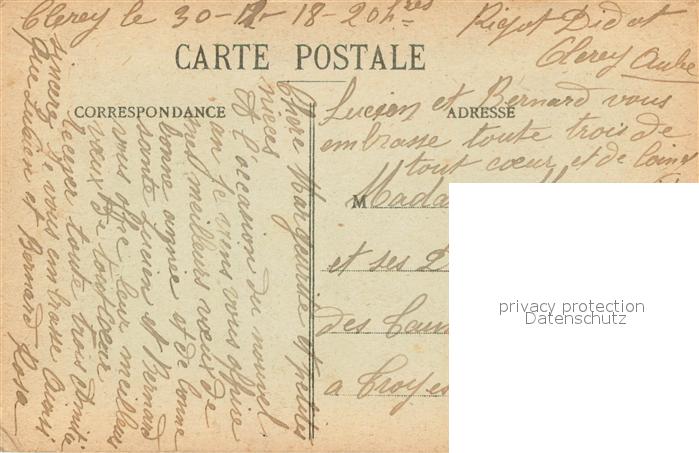 Clerey le 30-12-18-20hres
Rigot Didot
Clerey Aube
CARTE POSTALE
CORRESPONDANCE
ADRESSE
Lucien et Bernard vous
embrasse toute trois de
tout cœur et de loin
M Mada
et ses
des
a Troyes
Chère Marguerite et petites
nieces
A l'occasion du nouvel
an je viens vous offrire
mes meilleurs vœux de
bonne année et de bonne
santé Lucien et Bernard
vous offre leur meilleurs
vœux de tout cœur
recever toute trois amitié
sincere je vous embrasse Ainsi
que Lucien et Bernard Rosa
privacy protection
Datenschutz